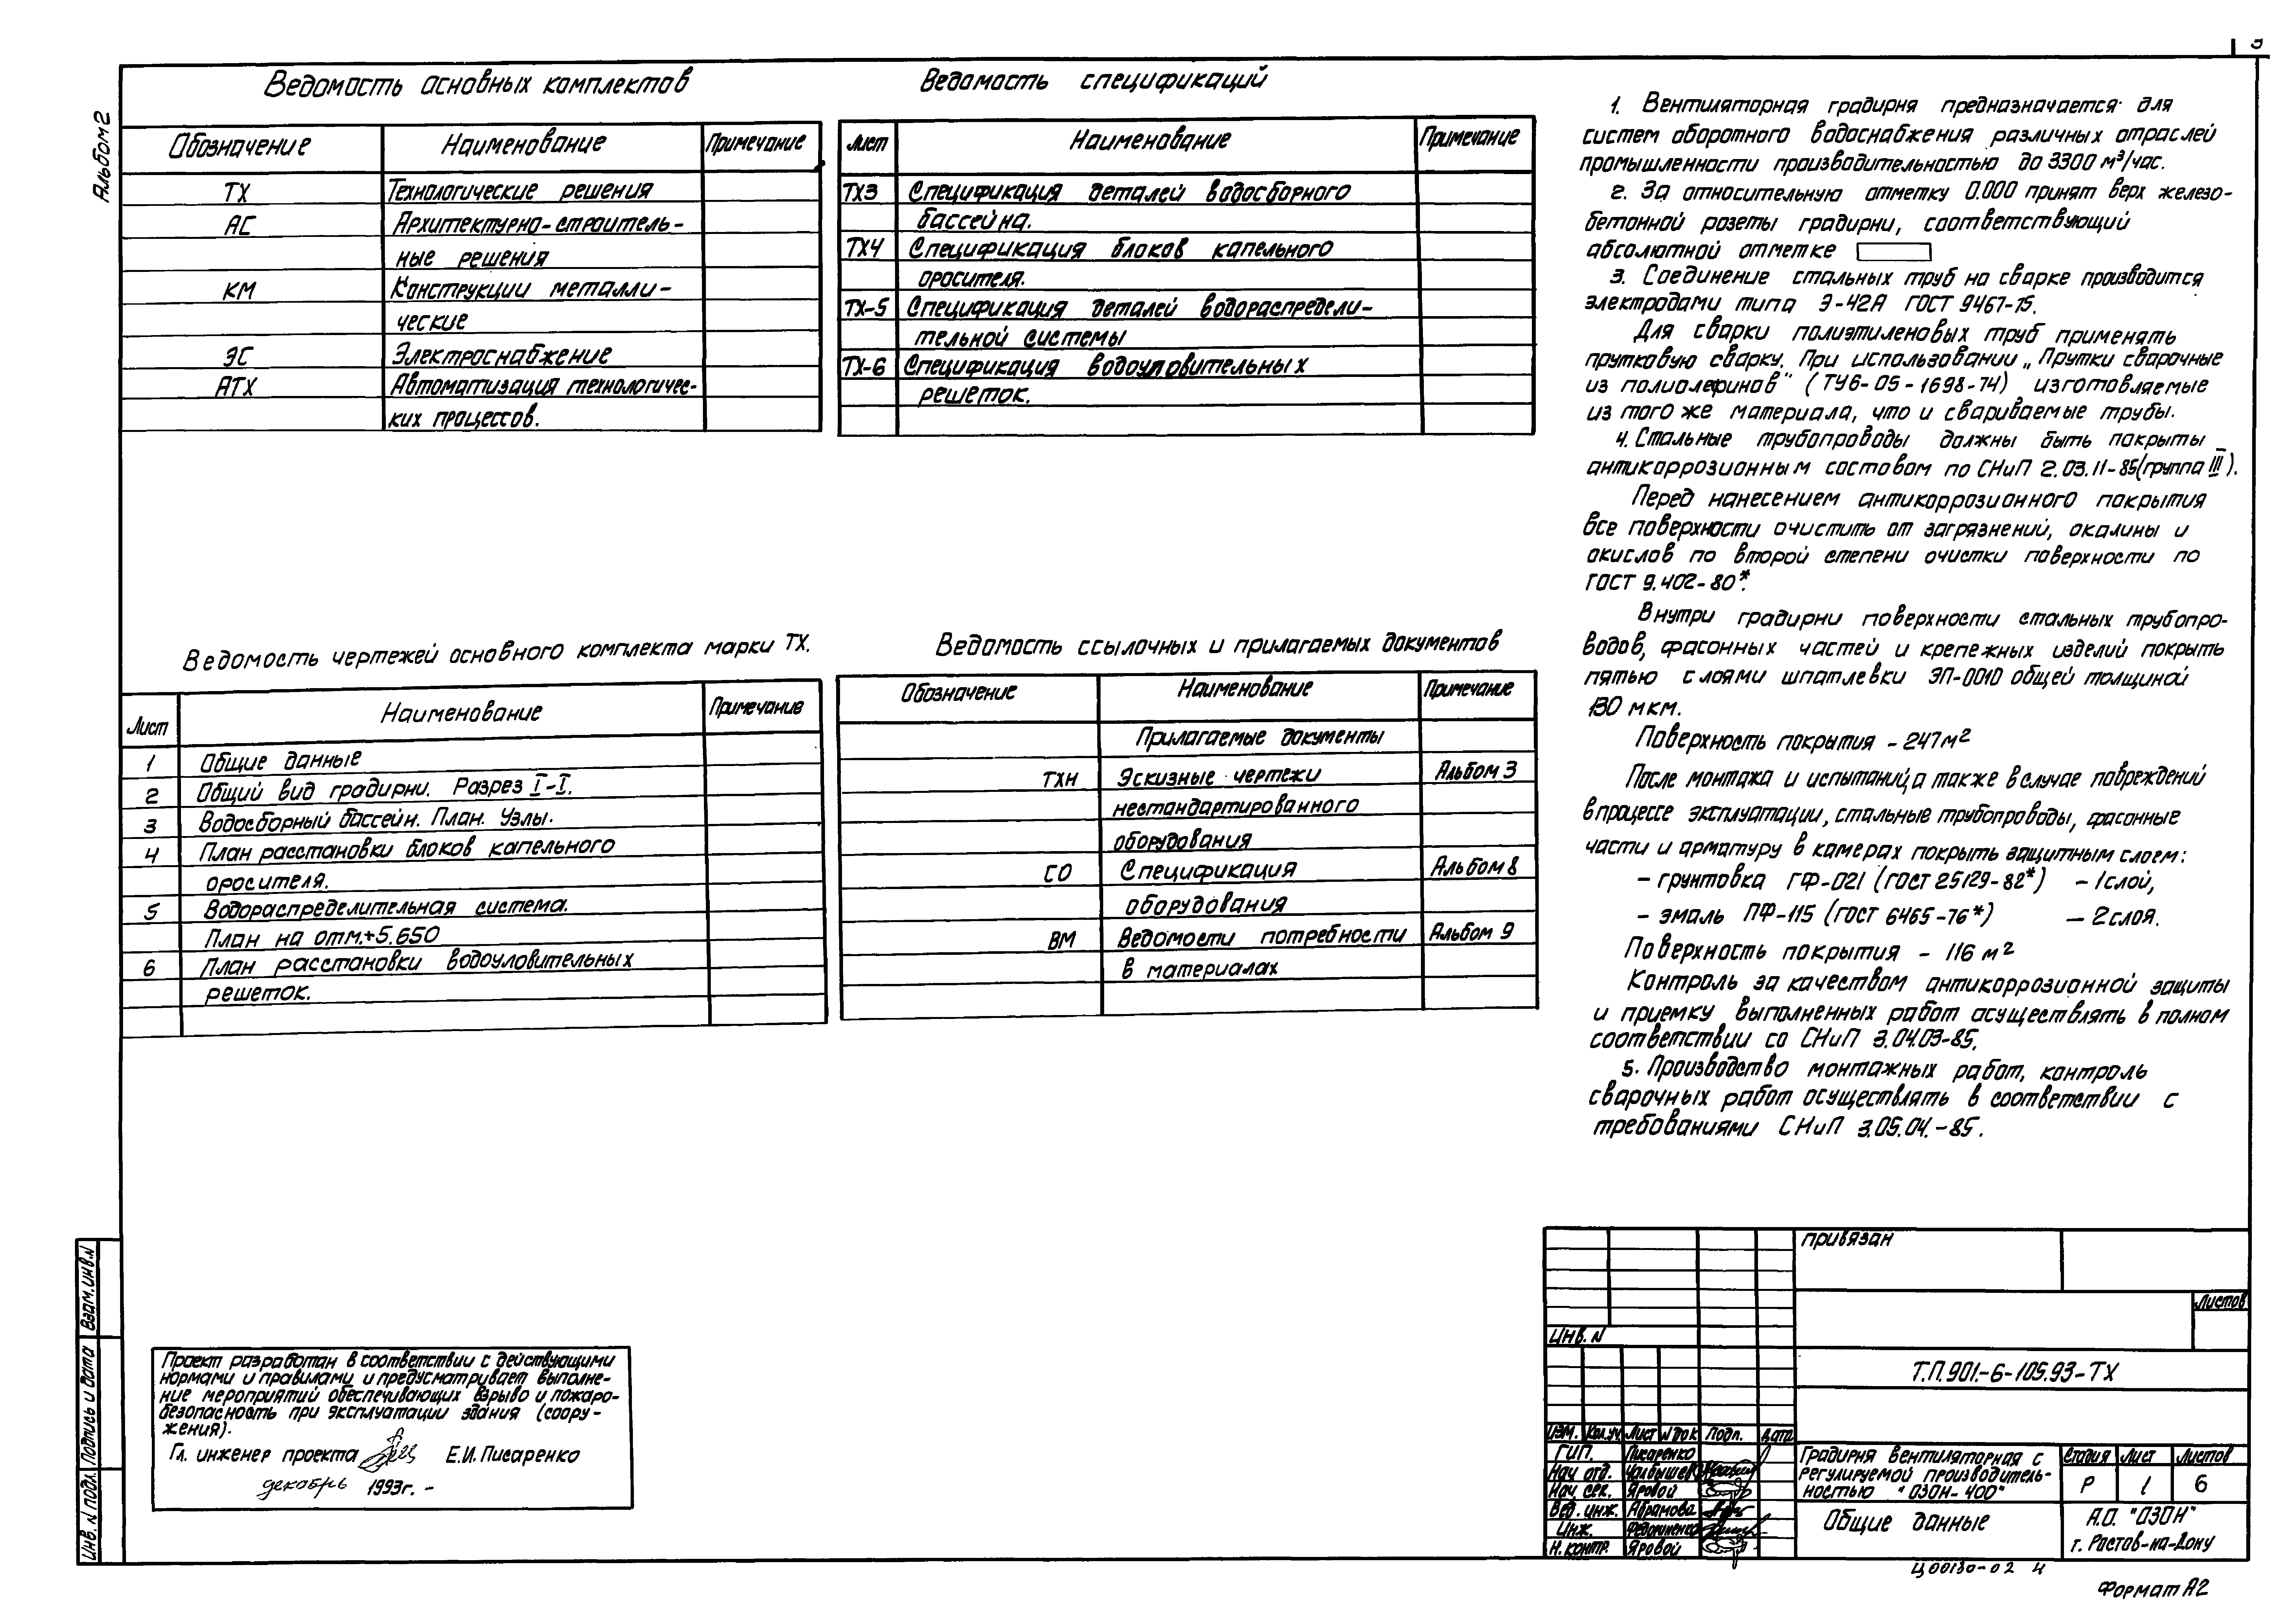 3
Альбом 2
Ведомость основных комплектов
Обозначение Наименование Примечание
ТХ Технологические решения
АС Архитектурно-строитель-
ные решения
КМ Конструкции металли-
ческие
ЭС Электроснабжение
АТХ Автоматизация технологичес-
ких процессов.
Ведомость спецификаций
Лист Наименование Примечание
ТХ3 Спецификация деталей водосборного
бассейна.
ТХ4 Спецификация блоков капельного
оросителя.
ТХ-5 Спецификация деталей водораспредели-
тельной системы
ТХ-6 Спецификация водоуловительных
решеток.
Ведомость чертежей основного комплекта марки ТХ.
Лист Наименование Примечание
1 Общие данные
2 Общий вид градирни. Разрез I-I.
3 Водосборный бассейн. План. Узлы.
4 План расстановки блоков капельного
оросителя.
5 Водораспределительная система.
План на отм.+5.650
6 План расстановки водоуловительных
решеток.
Ведомость ссылочных и прилагаемых документов
Обозначение Наименование Примечание
Прилагаемые документы
ТХН Эскизные чертежи Альбом 3
нестандартированного
оборудования
СО Спецификация Альбом 8
оборудования
ВМ Ведомости потребности Альбом 9
в материалах
1. Вентиляторная градирня предназначается для
систем оборотного водоснабжения различных отраслей
промышленности производительностью до 3300 м³/час.
2. За относительную отметку 0.000 принят верх железо-
бетонной розеты градирни, соответствующий
абсолютной отметке
3. Соединение стальных труб на сварке производится
электродами типа Э-42А ГОСТ 9467-75.
Для сварки полиэтиленовых труб применять
прутковую сварку. При использовании „Прутки сварочные
из полиолефинов" (ТУ6-05-1698-74) изготовляемые
из того же материала, что и свариваемые трубы.
4. Стальные трубопроводы должны быть покрыты
антикоррозионным составом по СНиП 2.03.11-85(группа III).
Перед нанесением антикоррозионного покрытия
все поверхности очистить от загрязнений, окалины и
окислов по второй степени очистки поверхности по
ГОСТ 9.402-80*.
Внутри градирни поверхности стальных трубопро-
водов, фасонных частей и крепежных изделий покрыть
пятью слоями шпатлевки ЭП-0010 общей толщиной
130 мкм.
Поверхность покрытия - 247м²
После монтажа и испытаний,а также в случае повреждений
в процессе эксплуатации, стальные трубопроводы, фасонные
части и арматуру в камерах покрыть защитным слоем:
- грунтовка ГФ-021 (ГОСТ 25129-82*) - 1слой,
- эмаль ПФ-115 (ГОСТ 6465-76*) - 2слоя.
Поверхность покрытия - 116 м²
Контроль за качеством антикоррозионной защиты
и приемку выполненных работ осуществлять в полном
соответствии со СНиП 3.04.03-85.
5. Производство монтажных работ, контроль
сварочных работ осуществлять в соответствии с
требованиями СНиП 3.05.04.-85.
Проект разработан в соответствии с действующими
нормами и правилами и предусматривает выполне-
ние мероприятий обеспечивающих взрыво и пожаро-
безопасность при эксплуатации здания (соору-
жения).
Гл. инженер проекта Е.И. Писаренко
декабрь 1993г. -
Взам.инв.N
Подпись и дата
Инв. N подл.
привязан
Листов
Инв. N
Т.П.901.-6-105.93-ТХ
Изм. Кол.уч Лист N док Подп. Дата
ГИП. Писаренко
Нач. отд.
Нач. сек. Яровой
Вед. инж. Абрамова
Инж.
Н. контр. Яровой
Градирня вентиляторная с
регулируемой производитель-
ностью "ОЗОН-400"
Стадия Лист Листов
Р 1 6
Общие данные
А.О. "ОЗОН"
г. Ростов-на-Дону
Ц00130-02 4
Формат А2